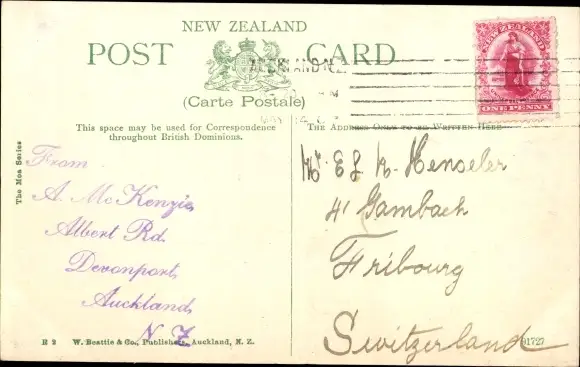 NEW ZEALAND
POST CARD
(Carte Postale)
AUCKLAND N.Z.
NEW ZEALAND
ONE PENNY
This space may be used for Correspondence
throughout British Dominions.
THE ADDRESS ONLY TO BE WRITTEN HERE
The Moa Series
From
A. McKenzie
Albert Rd.
Devonport,
Auckland,
N Z
Henseler
41 Gambach
Fribourg
Switzerland
R 2 W. Beattie & Co., Publishers, Auckland, N. Z.
91727